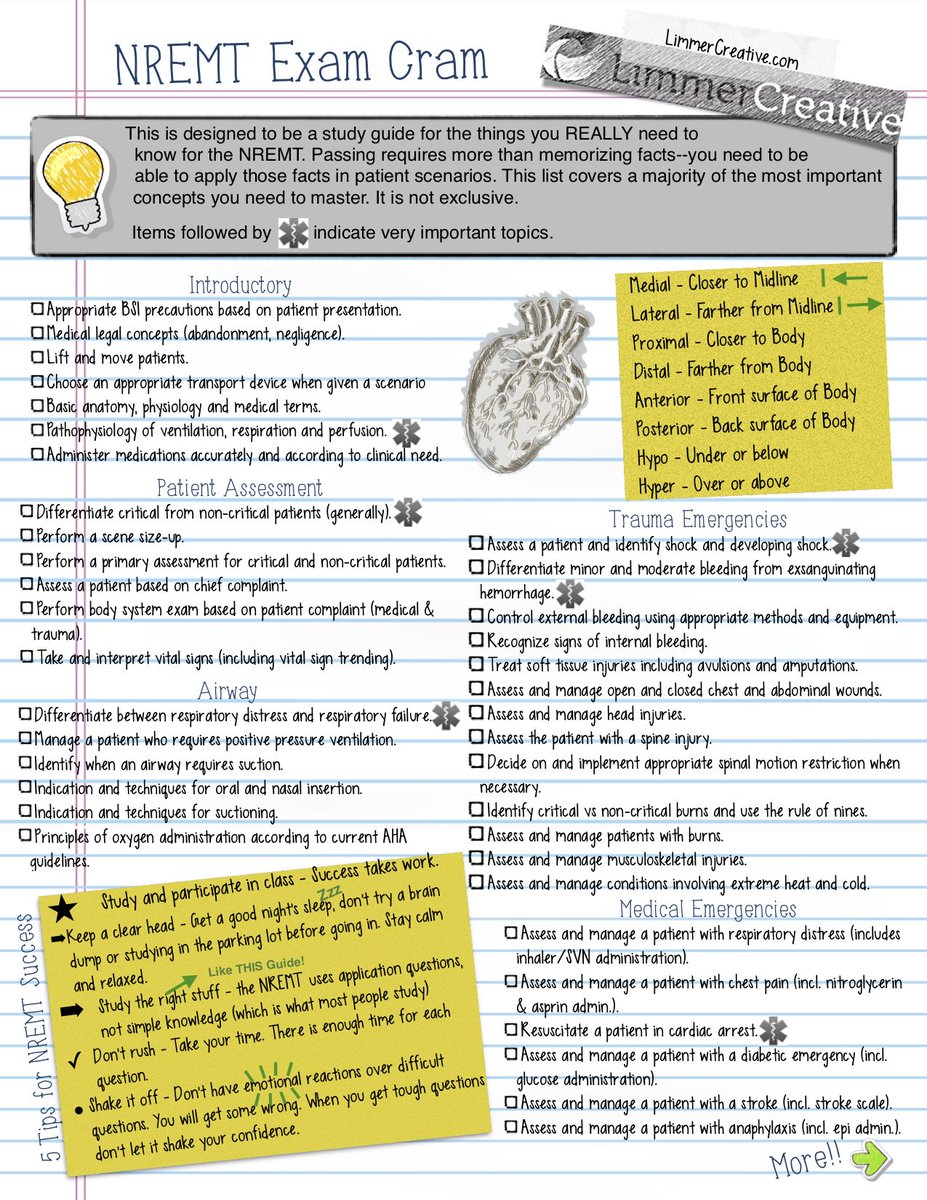 NREMT Exam Cram
LimmerCreative.com
LimmerCreative
This is designed to be a study guide for the things you REALLY need to
know for the NREMT. Passing requires more than memorizing facts--you need to be
able to apply those facts in patient scenarios. This list covers a majority of the most important
concepts you need to master. It is not exclusive.
Items followed by indicate very important topics.
Introductory
Appropriate BSI precautions based on patient presentation.
Medical legal concepts (abandonment, negligence).
Lift and move patients.
Choose an appropriate transport device when given a scenario
Basic anatomy, physiology and medical terms.
Pathophysiology of ventilation, respiration and perfusion.
Administer medications accurately and according to clinical need.
Medial - Closer to Midline
Lateral - Farther from Midline
Proximal - Closer to Body
Distal - Farther from Body
Anterior - Front surface of Body
Posterior - Back surface of Body
Hypo - Under or below
Hyper - Over or above
Patient Assessment
Differentiate critical from non-critical patients (generally).
Perform a scene size-up.
Perform a primary assessment for critical and non-critical patients.
Assess a patient based on chief complaint.
Perform body system exam based on patient complaint (medical &
trauma).
Take and interpret vital signs (including vital sign trending).
Airway
Differentiate between respiratory distress and respiratory failure.
Manage a patient who requires positive pressure ventilation.
Identify when an airway requires suction.
Indication and techniques for oral and nasal insertion.
Indication and techniques for suctioning.
Principles of oxygen administration according to current AHA
guidelines.
Trauma Emergencies
Assess a patient and identify shock and developing shock.
Differentiate minor and moderate bleeding from exsanguinating
hemorrhage.
Control external bleeding using appropriate methods and equipment.
Recognize signs of internal bleeding.
Treat soft tissue injuries including avulsions and amputations.
Assess and manage open and closed chest and abdominal wounds.
Assess and manage head injuries.
Assess the patient with a spine injury.
Decide on and implement appropriate spinal motion restriction when
necessary.
Identify critical vs non-critical burns and use the rule of nines.
Assess and manage patients with burns.
Assess and manage musculoskeletal injuries.
Assess and manage conditions involving extreme heat and cold.
Medical Emergencies
Assess and manage a patient with respiratory distress (includes
inhaler/SVN administration).
Assess and manage a patient with chest pain (incl. nitroglycerin
& asprin admin.).
Resuscitate a patient in cardiac arrest.
Assess and manage a patient with a diabetic emergency (incl.
glucose administration).
Assess and manage a patient with a stroke (incl. stroke scale).
Assess and manage a patient with anaphylaxis (incl. epi admin.).
More!!
5 Tips for NREMT Success
Study and participate in class - Success takes work.
Zzz
Keep a clear head - Get a good night's sleep, don't try a brain
dump or studying in the parking lot before going in. Stay calm
and relaxed.
Like THIS Guide!
Study the right stuff - the NREMT uses application questions,
not simple knowledge (which is what most people study)
Don't rush - Take your time. There is enough time for each
question.
Shake it off - Don't have emotional reactions over difficult
questions. You will get some wrong. When you get tough questions
don't let it shake your confidence.